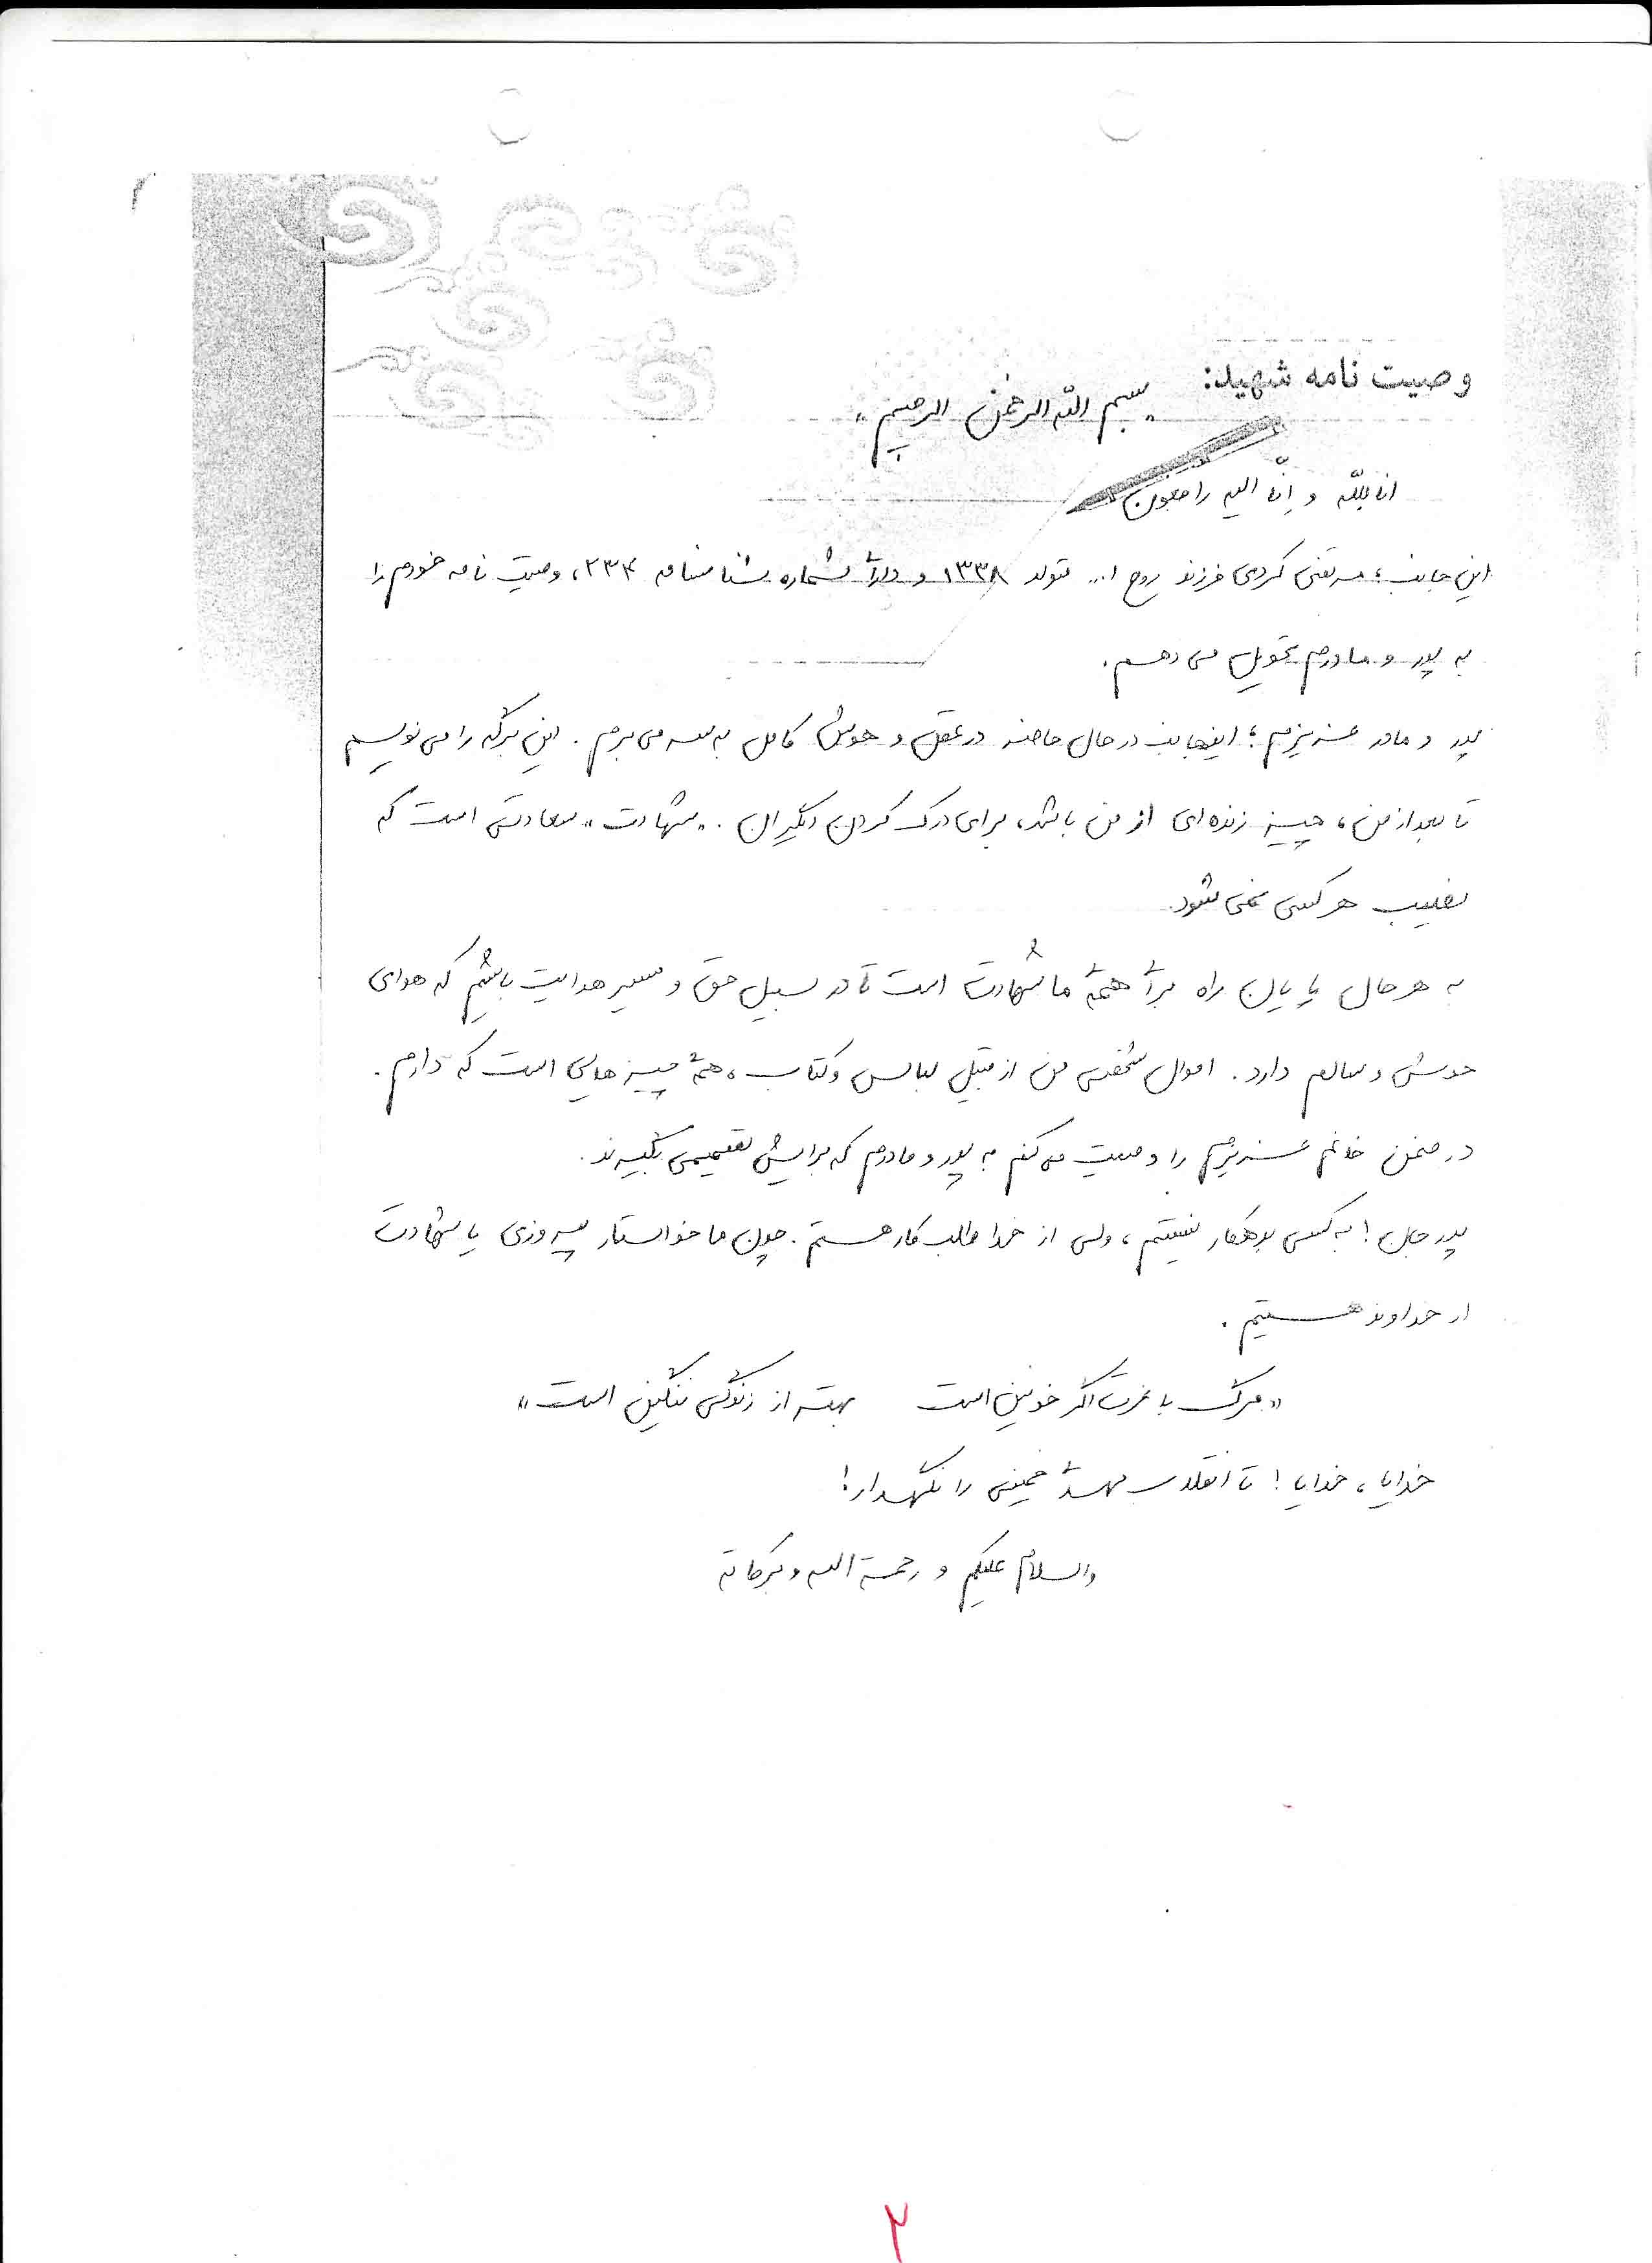 وصیت نامه شهید:
"بسم الله الرحمن الرحیم"
انا لله و انّا الیه راجعون
این جانب؛ مرتضی کردی فرزند روح ا... متولد ۱۳۳۸ و دارای شماره شناسنامه ۲۳۴، وصیت نامه خودم را
به پدر و مادرم تحویل می دهم.
پدر و مادر عزیزم؛ اینجانب در حال حاضر در عقل و هوش کامل به سر می برم. این برگه را می نویسم
تا بعد از من، چیز زنده ای از من باشد، برای درک کردن دیگران. "شهادت" سعادتی است که
نصیب هر کسی نمی شود.
به هر حال پایان راه برای همۀ ما شهادت است تا در سبیل حق و مسیر هدایت باشیم که هوای
خوش و سالم دارد. اموال شخصی من از قبیل لباس و کتاب، همۀ چیزهایی است که دارم.
در ضمن خانم عزیزم را وصیت می کنم به پدر و مادرم که برایش تصمیمی بگیرند.
پدر جان! به کسی بدهکار نیستم، ولی از خدا طلب کار هستم. چون ما خواستار پیروزی یا شهادت
از خداوند هستیم.
"مرگ با عزت اگر خونین است بهتر از زندگی ننگین است"
خدایا، خدایا! تا انقلاب مهدی خمینی را نگهدار!
والسلام علیکم و رحمة الله و برکاته
۲